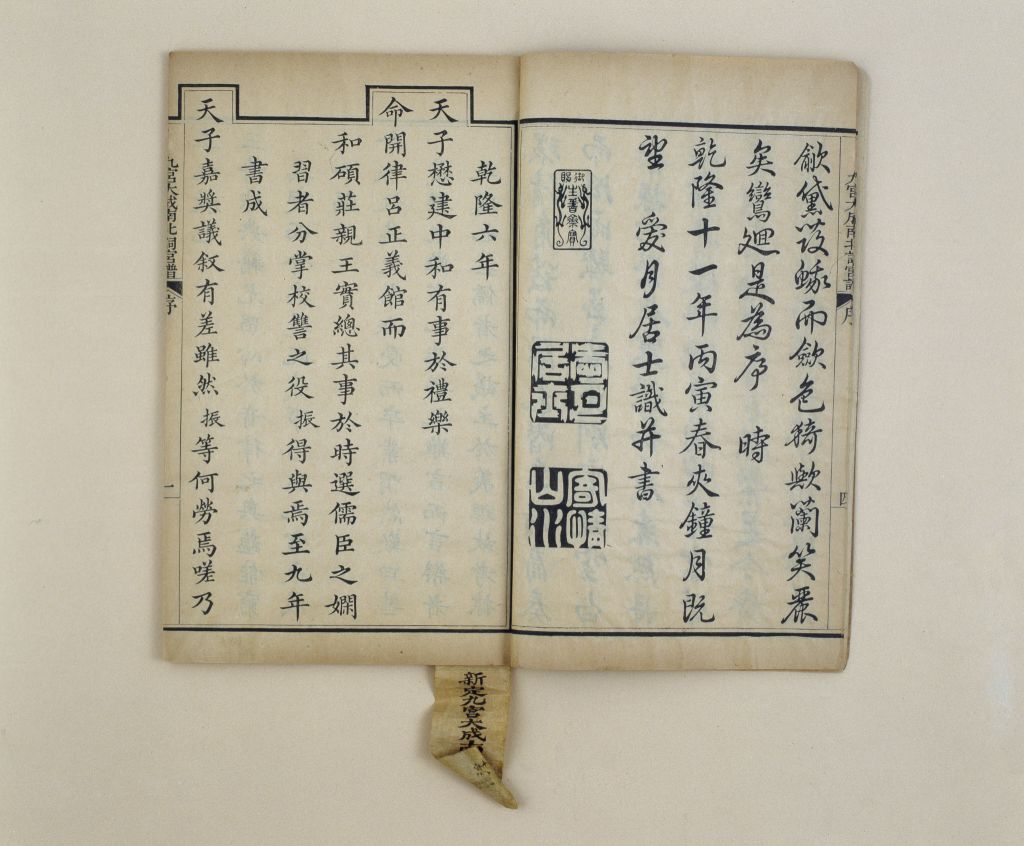 歈黛蛾而斂色猗歟蘭笑麗
矣鸞廻是為序 時
乾隆十一年丙寅春夾鐘月既
望 愛月居士識并書
九宮大成南北詞宮譜
序
四
乾隆六年
天子懋建中和有事於禮樂
命開律呂正義館而
和碩莊親王實總其事於時選儒臣之嫻
習者分掌校讐之役振得與焉至九年
書成
天子嘉奬議叙有差雖然振等何勞焉嗟乃
九宮大成南北詞宮譜
序
一
寄情
山水
新定九宮大成